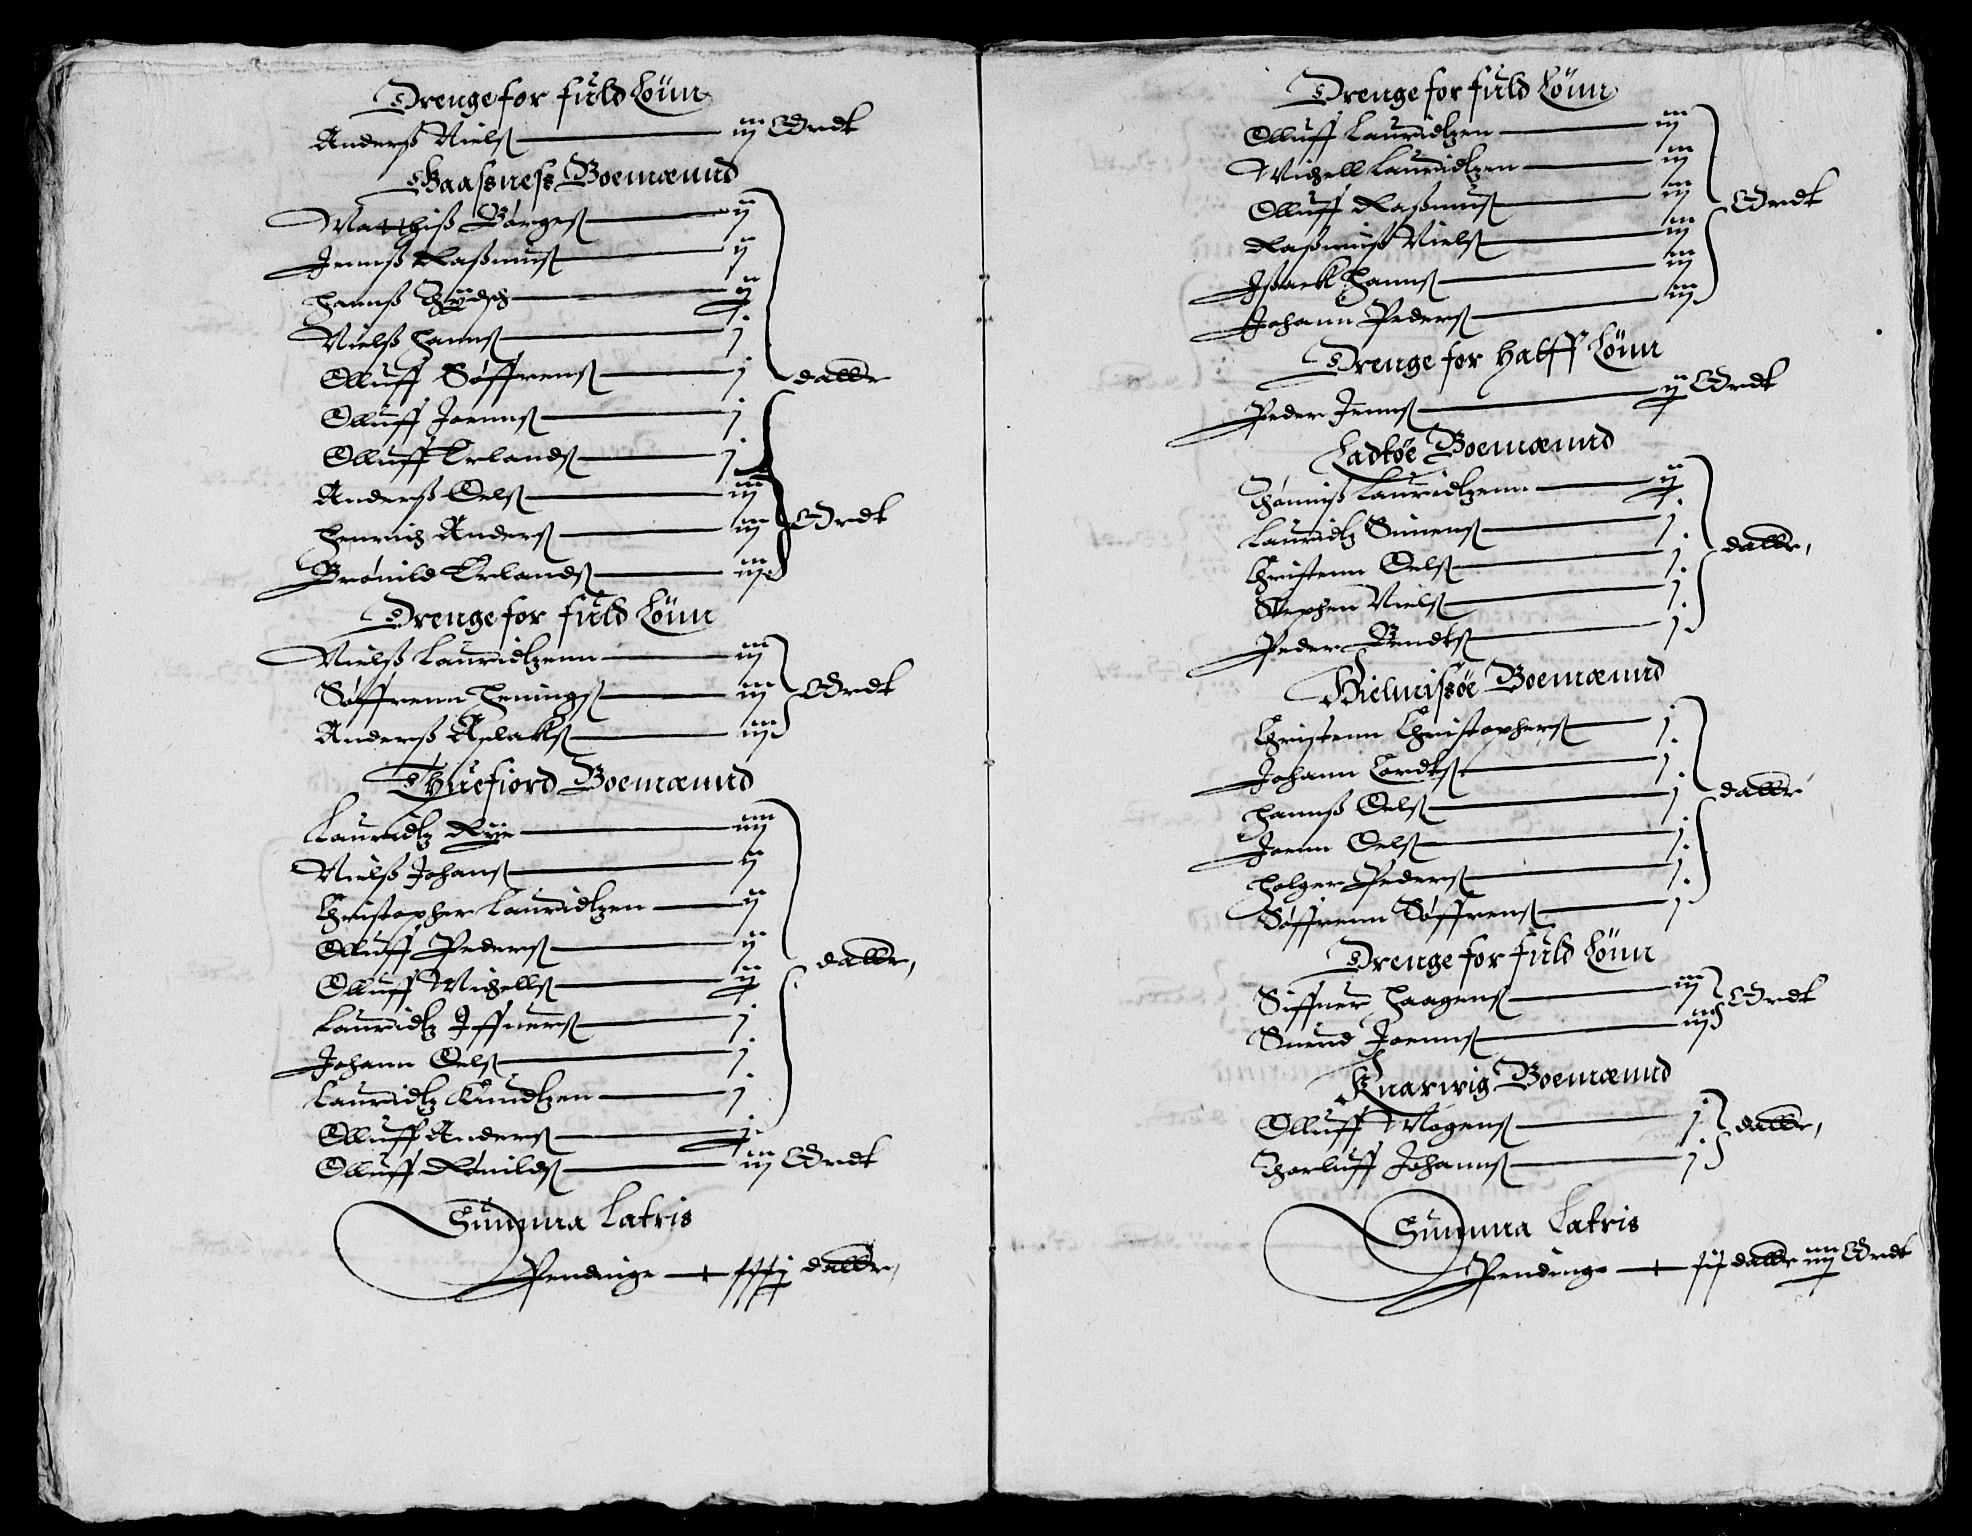 Drenge for fuld Lönn
Anderß Nielß iij Ordt
Gaassness Boemænnd
Matthiß Børgeß ij
Jennß Raßmuß ij
Hannß ij
Nielß Hannß j
Olluff Søffrenß j
daller
Olluff Joennß j
Olluff Erlandß j
Anderß Oelß iij
Henrich Anderß iij
Ordt
Brønild Erlandß iij
Drenge for fuld Lönn
Nielß Lauridtzenn iij
Søffrenn Heningß iij
Ordt
Anderß Aslakß iij
Thuefiord Boemænnd
Lauridtz Rye iiij
Nielß Johanß ij
Christopher Lauridtzen ij
Olluff Pederß ij
daller,
Olluff Michellß ij
Lauridtz Iffuerß j
Johann Oelß j
Lauridtz Knudtzen j
Olluff Anderß j
Olluff Rønildß iij Ordt
Summa Latris
Pendinge xxxj daller,
Drenge for fuld Lönn
Olluff Lauridtzen iij
Michell Lauridtzen iij
Olluff Raßmuß iij
Ordt
Raßmuß Nielß iij
Isaek Hannß iij
Johann Pederß iij
Drenge for halff Lönn
Peder Jennß ij Ordt
Ladtøe Boemænnd
Thønniß Lauridtzenn ij
Lauridtz Simenß j
Christenn Oelß j
daller,
Stephen Nielß j
Peder Bendtß j
Hielmissøe Boemænnd
Christenn Christopherß j
Johann Cordtß j
Hannß Oelß j
daller
Joenn Oelß j
Holger Pederß j
Søffrenn Søffrenß j
Drenge for fuld Lönn
Siffuer Haagenß iij
Ordt
Suend Joennß iij
Knarwig Boemænnd
Olluff Mogenß j
daller,
Thorluff Johannß j
Summa Latris
Pendinge xix daller iij Ordt